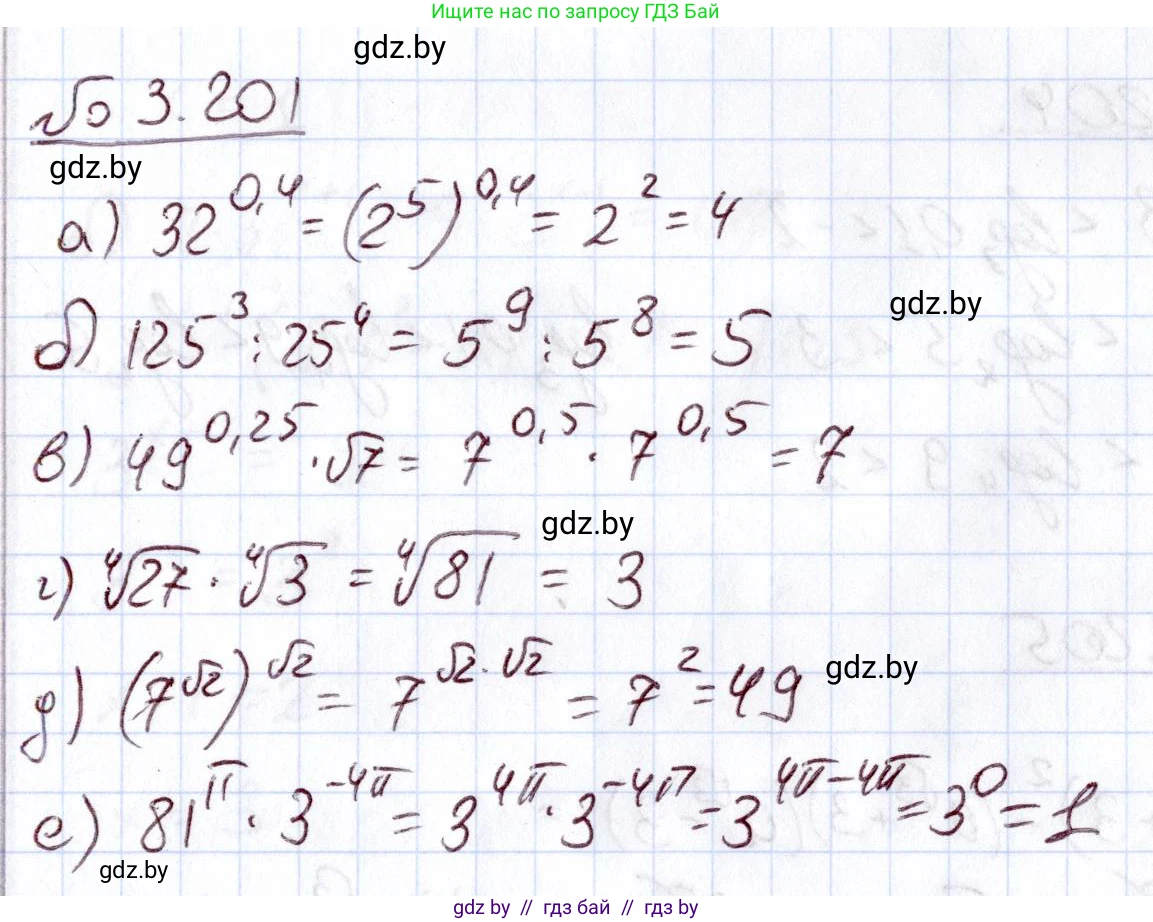 Ищите нас по запросу ГДЗ Бай
gdz.by
№ 3.201
gdz.by
а) 32^0,4 = (2^5)^0,4 = 2^2 = 4
gdz.by
б) 125^3 : 25^4 = 5^9 : 5^8 = 5
в) 49^0,25 · √7 = 7^0,5 · 7^0,5 = 7
gdz.by
г) ∜27 · ∜3 = ∜81 = 3
gdz.by
д) (7^√2)^√2 = 7^√2·√2 = 7^2 = 49
е) 81^π · 3^-4π = 3^4π · 3^-4π = 3^4π-4π = 3^0 = 1
gdz.by
gdz by // гдз бай // gdz by